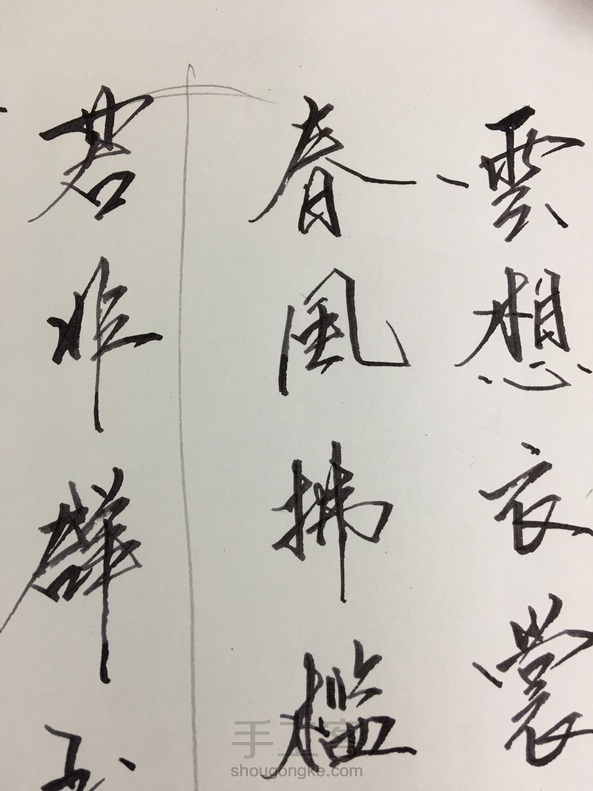 雲想衣裳
春風拂檻
若非群玉
手工客
shougongke.com